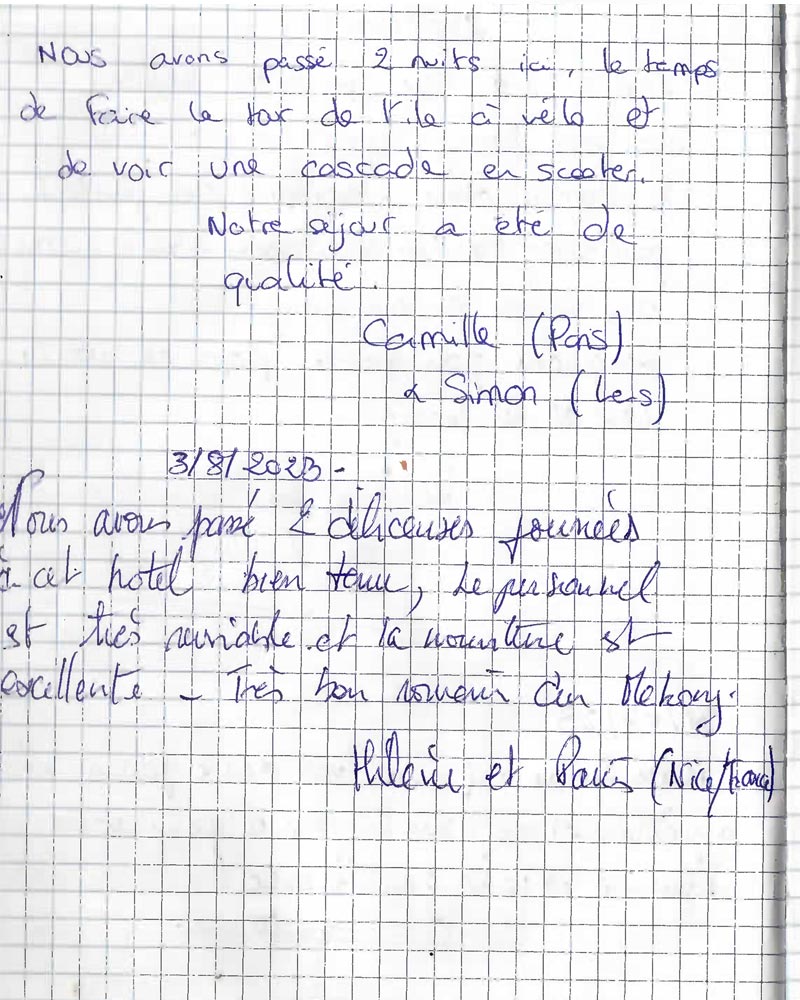 Nous avons passé 2 nuits ici, le temps
de faire le tour de l'île à vélo et
de voir une cascade en scooter.
Notre séjour a été de
qualité.
Camille (Paris)
& Simon (
3/8/2023 -
Nous avons passé 2 délicieuses journées
à cet hotel bien tenu, Le personnel
est très serviable et la nourriture est
excellente - Très bon souvenir du Mekong.
et (Nice/France)